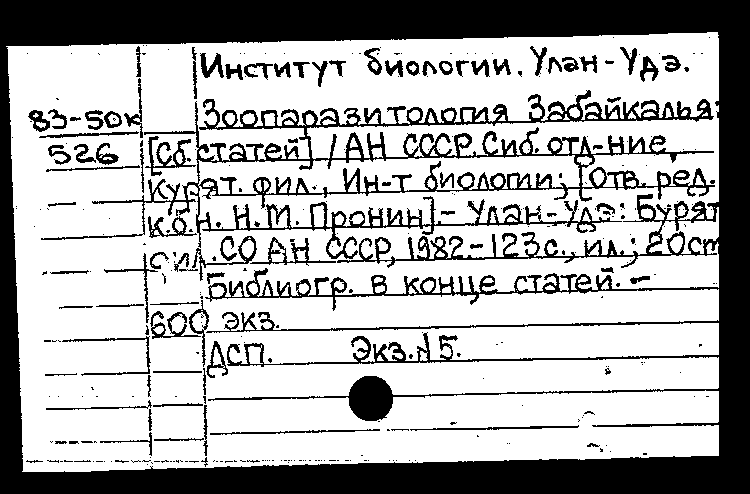 Институт биологии. Улан-Удэ.
83-50к Зоопаразитология Забайкалья:
526 [Сб. статей] / АН СССР. Сиб. отд-ние,
Курят. фил., Ин-т биологии; [Отв. ред.
к.б.н. Н.М. Пронин].- Улан-Удэ: Бурят
фил. СО АН СССР, 1982.-123с., ил.; 20см
Библиогр. в конце статей. -
600 экз.
ДСП. Экз.№5.